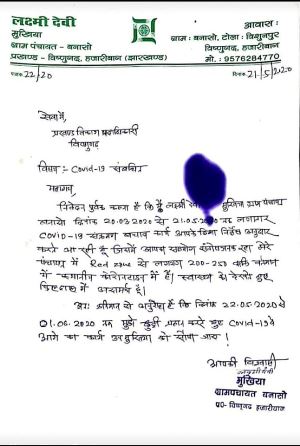 लक्ष्मी देवी
मुखिया
ग्राम पंचायत - बनासो
प्रखण्ड - विष्णुगढ़, हजारीबाग (झारखण्ड)
आवास :
ग्राम : बनासो, टोला : विशुनपुर
विष्णुगढ़, हजारीबाग
मो. : 9576284770
पत्रांक 22/20
दिनांक 21/5/2020
सेवा में,
प्रखण्ड विकास पदाधिकारी
विष्णुगढ़
विषय:- Covid-19 संबंधित
महाशय,
निवेदन पूर्वक कहना है कि मैं लक्ष्मी देवी मुखिया ग्राम पंचायत
बनासो दिनांक 20.03.2020 से 21.05.2020 तक लगातार
Covid-19 संक्रमण बचाव कार्य आपके दिशा निर्देश अनुसार
करते आ रही हूँ जिसमें आपका सहयोग
पंचायत में Red zone से लगभग 200-250 व्यक्ति
में क्वारंटाइन में हैं। स्वास्थ्य को देखते हुए
में असमर्थ हूँ।
अतः श्रीमान से अनुरोध है कि दिनांक 22.05.2020 से
01.06.2020 तक मुझे छुट्टी प्रदान करते हुए Covid-19 के
आगे का कार्य उप मुखिया को सौंपा जाय।
आपकी विश्वासी
लक्ष्मी देवी
मुखिया
ग्रामपंचायत बनासो
प्र0- विष्णुगढ़ हजारीबाग